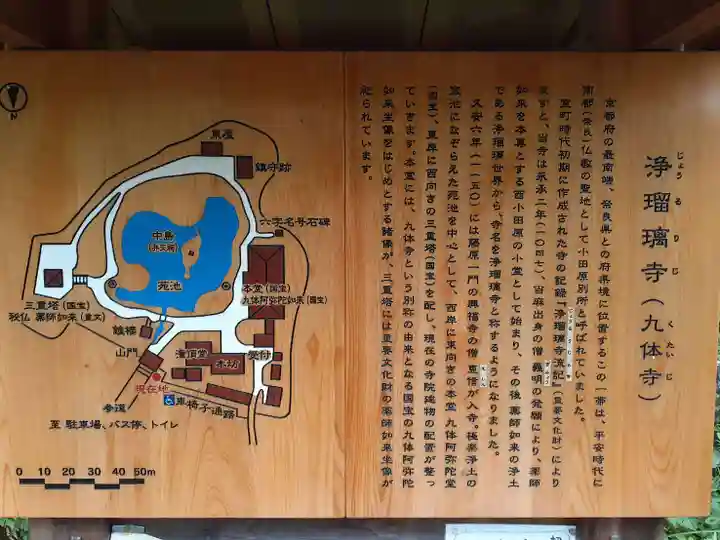 浄瑠璃寺（九体寺）
じょうるりじ
くたいじ
京都府の最南端、奈良県との府県境に位置するこの一帯は、平安時代に
南都（奈良）仏教の聖地として小田原別所と呼ばれていました。
室町時代初期に作成された寺の記録『浄瑠璃寺流記』（重要文化財）により
ますと、当寺は永承二年（一〇四七）、当麻出身の僧 義明の発願により、薬師
如来を本尊とする西小田原の小堂として始まり、その後薬師如来の浄土
である浄瑠璃世界から、寺名を浄瑠璃寺と称するようになりました。
久安六年（一一五〇）には藤原一門の興福寺の僧 恵信が入寺。極楽浄土の
宝池になぞらえた苑池を中心として、西岸に東向きの本堂 九体阿弥陀堂
（国宝）、東岸に西向きの三重塔（国宝）を配し、現在の寺院建物の配置が整っ
ていきます。本堂には、九体寺という別称の由来となる国宝の九体阿弥陀
如来坐像をはじめとする諸像が、三重塔には重要文化財の薬師如来坐像が
祀られています。
N
東屋
鎮守跡
六字名号石碑
中島
（弁天祠）
苑池
本堂（国宝）
九体阿弥陀如来（国宝）
三重塔（国宝）
秘仏 薬師如来（重文）
鐘楼
山門
灌頂堂
本坊
受付
現在地
参道
車椅子通路
至 駐車場、バス停、トイレ
0 10 20 30 40 50m